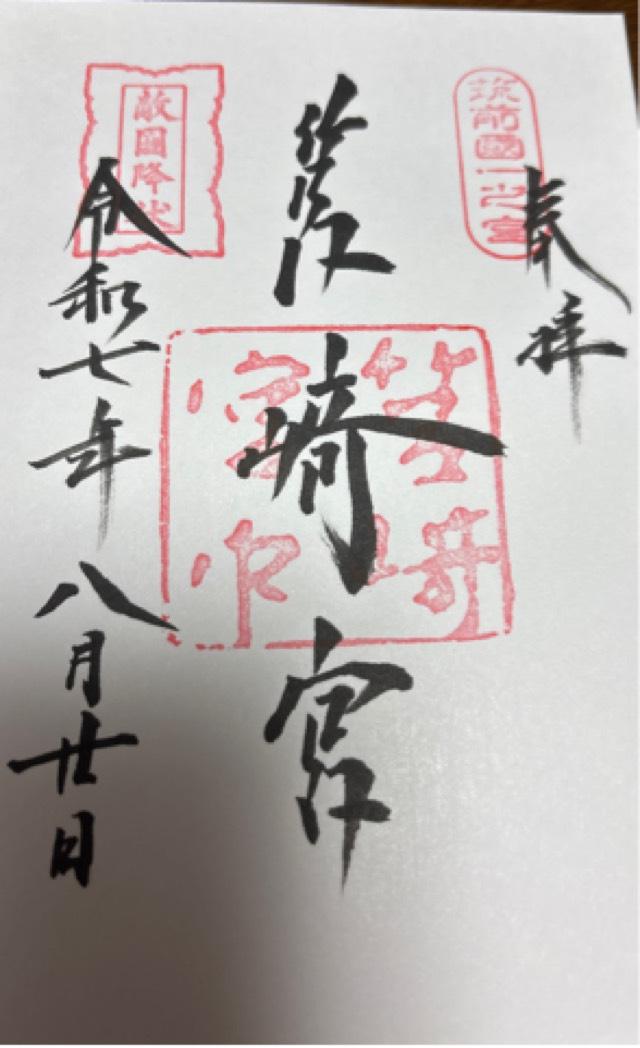 奉拝
筑前國一之宮
筥崎宮
筥崎宮印
敵國降伏
令和七年八月廿日